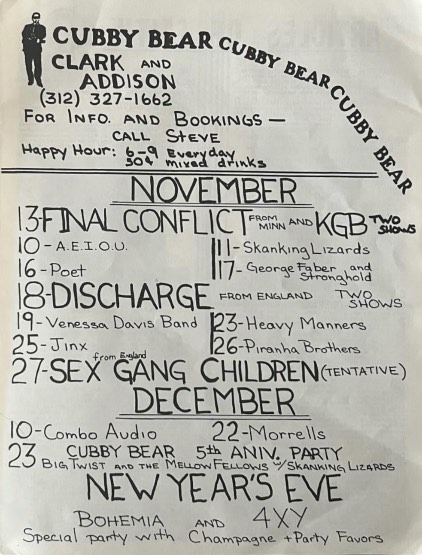 CUBBY BEAR CUBBY BEAR CUBBY BEAR
CLARK AND
ADDISON
(312) 327-1662
FOR INFO. AND BOOKINGS —
CALL STEVE
Happy Hour: 6-9 Everyday
50¢ mixed drinks
NOVEMBER
13-FINAL CONFLICT FROM MINN AND KGB TWO SHOWS
10 - A.E.I.O.U.
11- Skanking Lizards
16-Poet
17- George Faber and Stronghold
18-DISCHARGE FROM ENGLAND TWO SHOWS
19- Venessa Davis Band
23-Heavy Manners
25-Jinx
26-Piranha Brothers
27-SEX GANG CHILDREN (TENTATIVE)
from England
DECEMBER
10-Combo Audio
22-Morrells
23 CUBBY BEAR 5th ANIV. PARTY
BIG TWIST AND THE MELLOW FELLOWS W/SKANKING LIZARDS
NEW YEAR'S EVE
BOHEMIA AND 4XY
Special party with Champagne + Party Favors